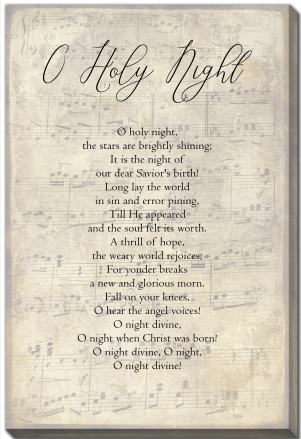 O Holy Night
O holy night,
the stars are brightly shining;
It is the night of
our dear Savior's birth!
Long lay the world
in sin and error pining.
Till He appeared
and the soul felt its worth.
A thrill of hope,
the weary world rejoices,
For yonder breaks
a new and glorious morn.
Fall on your knees,
O hear the angel voices!
O night divine,
O night when Christ was born!
O night divine, O night,
O night divine!